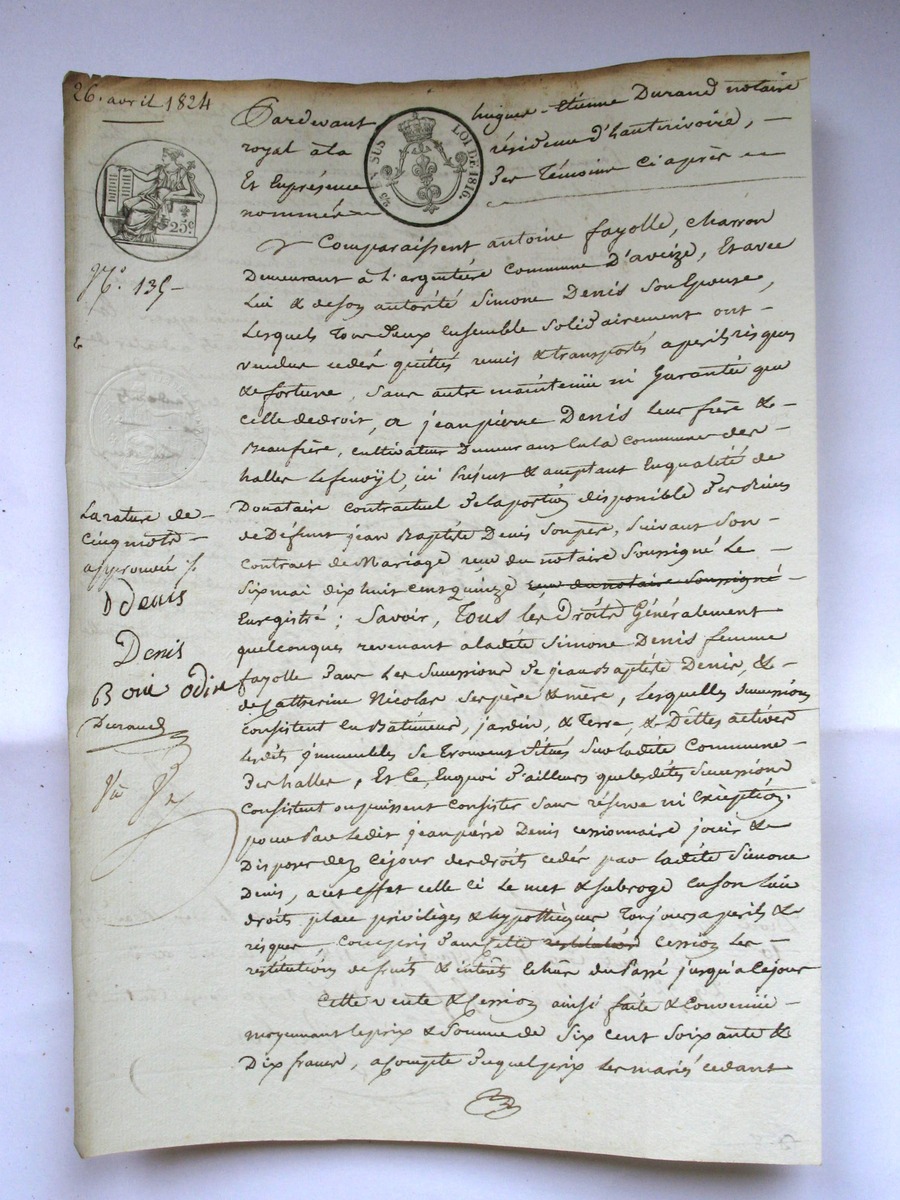 26. avril 1824
Pardevant hugues-étienne Durand notaire
royal à la résidence d'hauterivoire, —
Et En présence des Témoins Ci après —
nommés —
LOI DE 1816.
25c
No. 135 —
Comparaissent antoine fayolle, charron
Demeurant à L'argentière Commune D'aveize, Et avec
Lui & de son autorité Simone Denis Son Epouse,
Lesquels Tous Deux Ensemble Solidairement ont —
vendus cédés quittés remis & transportés a perils risques
& fortune, Sans autre maintenüe ni Garantie que
celle de droit, a jeanpierre Denis Leur frère & —
Beaufrère, cultivateur Demeurant En la Commune des —
halles Le fenoÿl, ici Présent & aceptant En qualité de
Donataire contractuel De la portion disponible Des biens
de Défunt jean Baptiste Denis Son père, Suivant Son —
Contrat de Mariage reçu du notaire Soussigné Le —
Six mai dix huit cent quinze reçu du notaire Soussigné —
Enregistré ; Savoir, Tous les Droits Généralement
quelconques revenant a ladite Simone Denis femme
fayolle Dans Les Successions De jean Baptiste Denis, & —
de Catherine Nicolas Ses père & mère, Lesquelles Successions
Consistent En Bâtiments, jardin, & Terre, & Dettes actives
Lesdits Immeubles Se Trouvent Situés Sur ladite Commune —
Des halles, Et Ce, En quoi D'ailleurs que lesdites Successions
Consistent ou puissent Consister Sans réserve ni Exception.
pour Par Ledit jean pierre Denis cessionnaire jouir & —
Disposer dez Céjour des droits cédés par ladite Simone
Denis, a cet effet celle ci Le met & subroge En Son Lieu
droits place privilèges & hypothèques Toujours a perils &
risques, Compris Dans Cette restitution cession Les —
restitutions de fruits & intérêts Echûs du Passé jusqu'a Cejour
Cette vente & Cession ainsi faite & Convenüe —
moyennant le prix & Somme de Six Cent Soixante &
Dix francs, a Compte Duquel prix Les mariés cedants
La rature de —
Cinq mots —
approuvée ./.
D Denis
Denis
odin
Durand